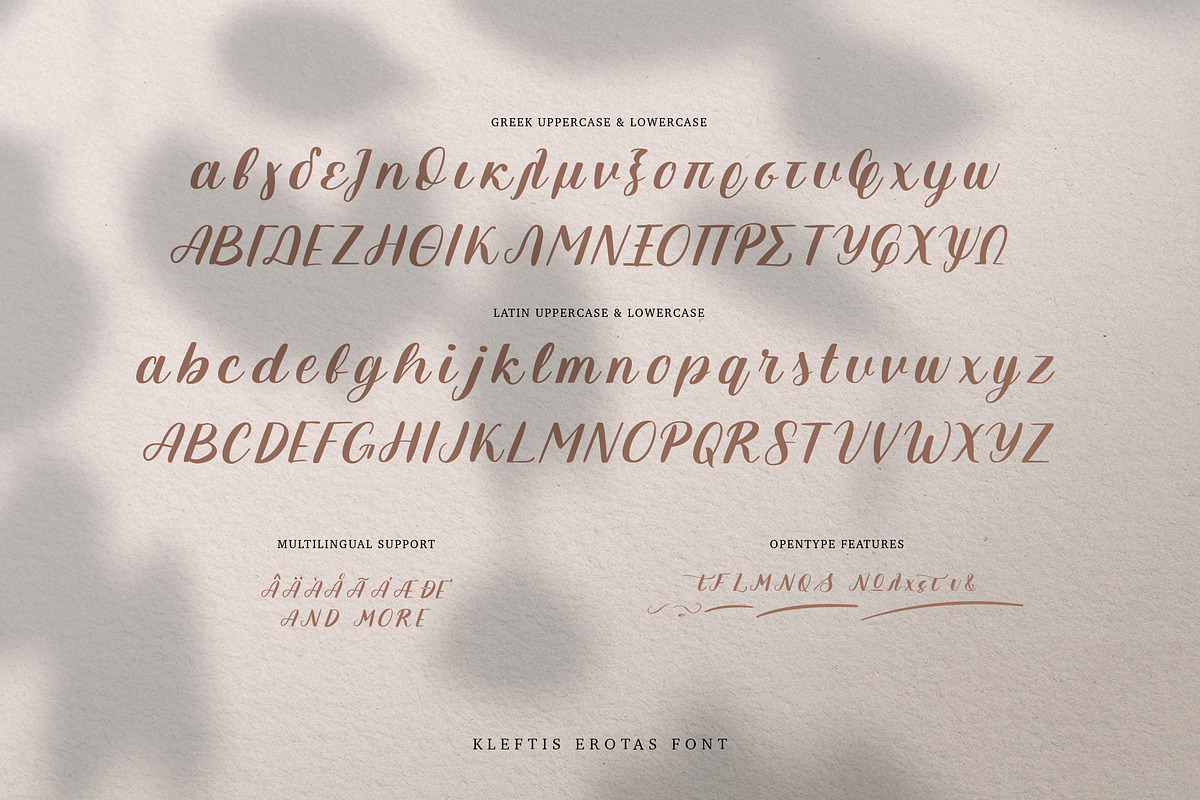 GREEK UPPERCASE & LOWERCASE
αβγδεζηθικλμνξοπρστυφχψω
ΑΒΓΔΕΖΗΘΙΚΛΜΝΞΟΠΡΣΤΥΦΧΨΩ
LATIN UPPERCASE & LOWERCASE
abcdefghijklmnopqrstuvwxyz
ABCDEFGHIJKLMNOPQRSTUVWXYZ
MULTILINGUAL SUPPORT
OPENTYPE FEATURES
AND MORE
KLEFTIS EROTAS FONT